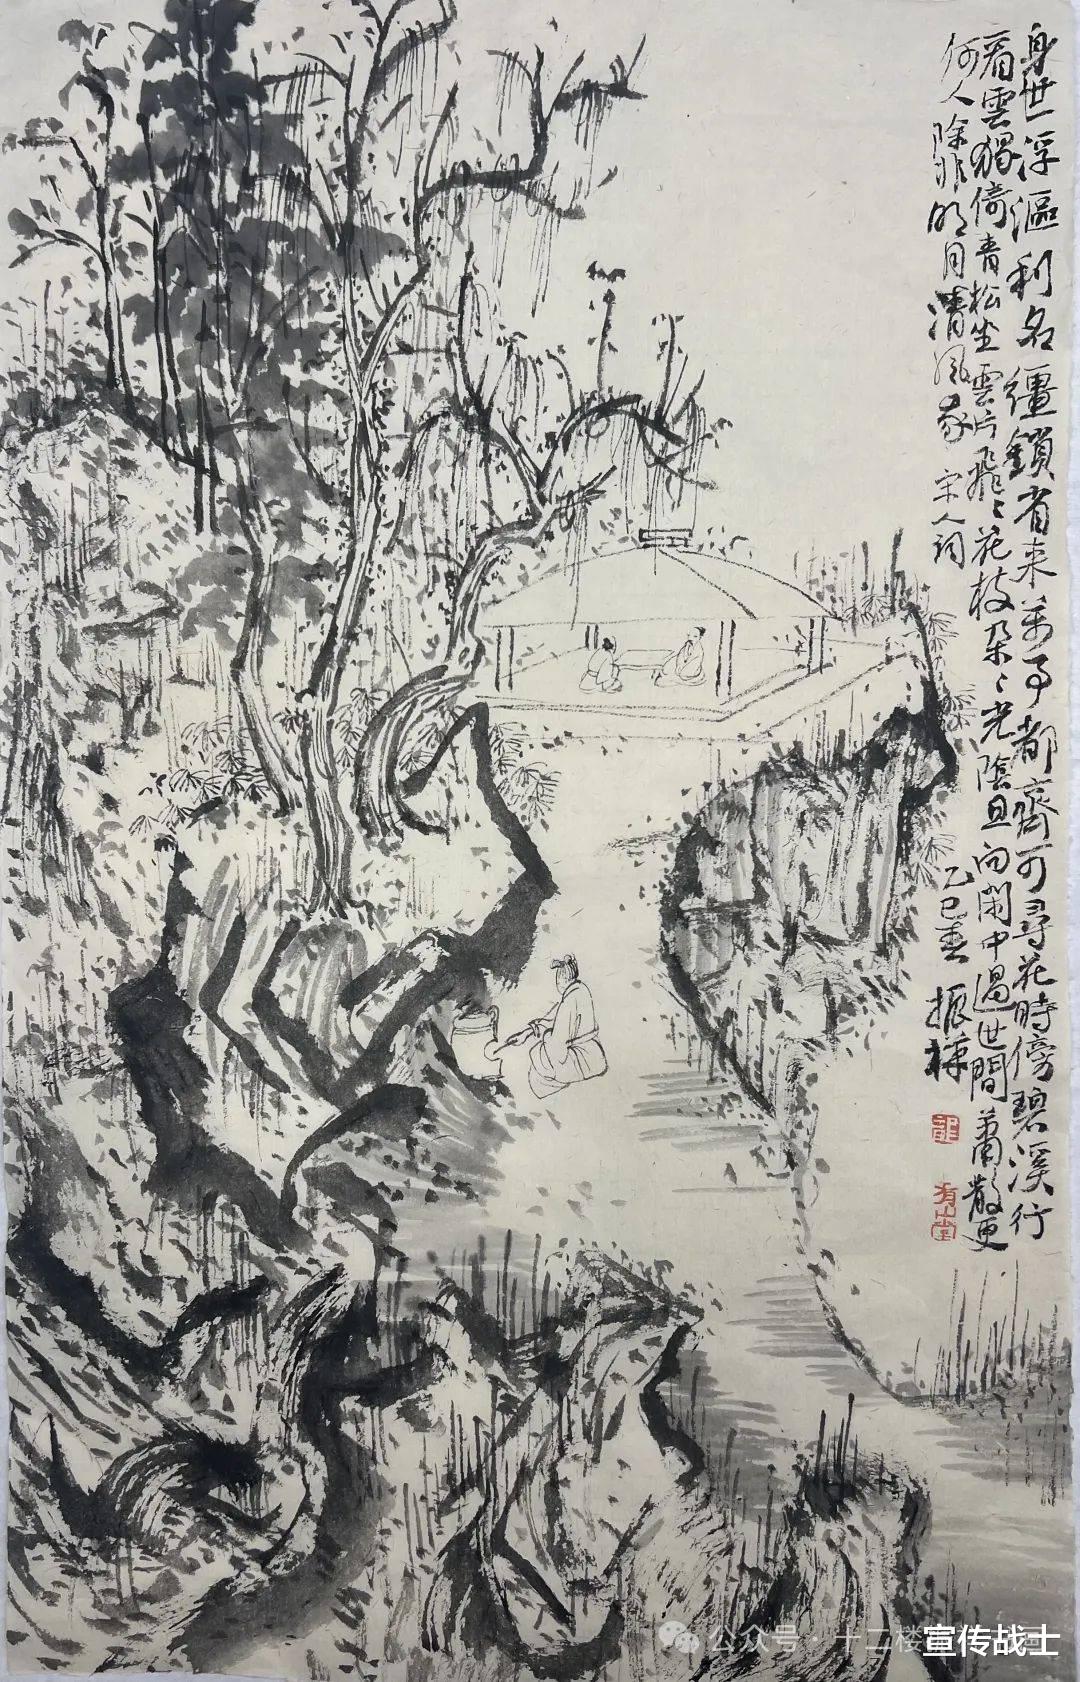 身世浮漚利名韁鎖省来万事都齊可尋花時傍碧溪行
看雲獨倚青松坐雲片飛々花枝朶々光陰且向閑中過世間蕭散更
何人除非明月清風我 宋人詞
乙巳春 振
有山堂
公众号·十二楼
宣传战士